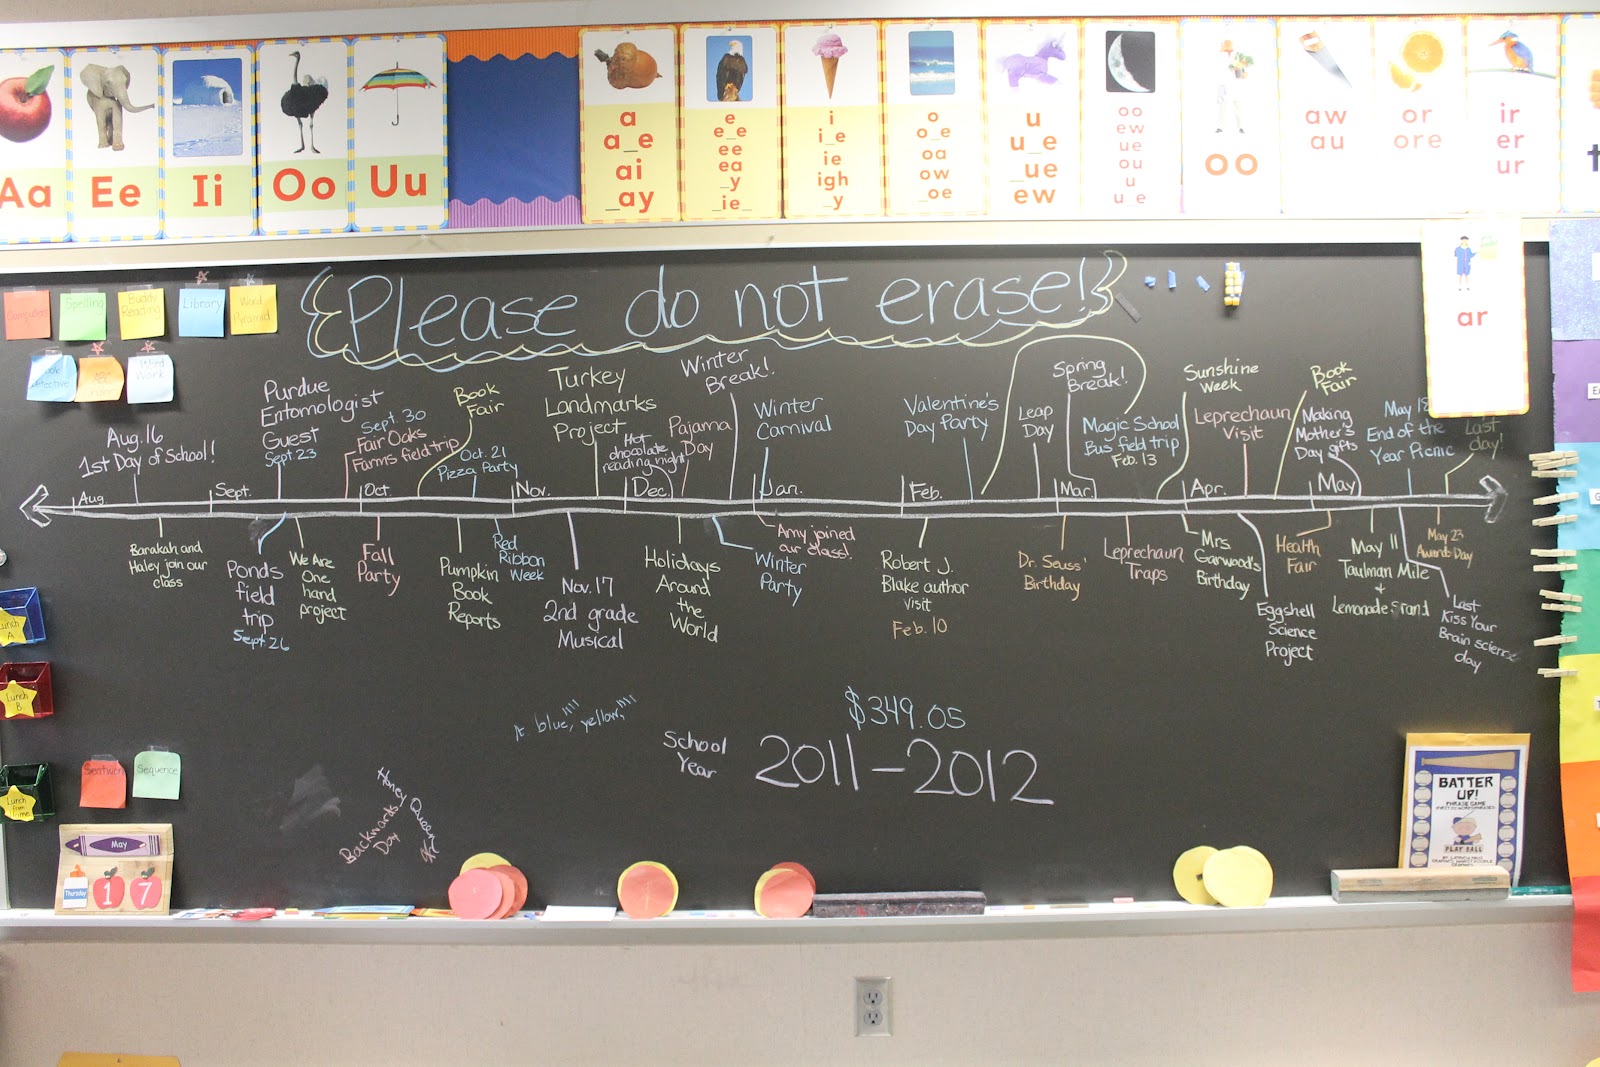 Aa
Ee
Ii
Oo
Uu
a
a_e
ai
_ay
e
e_e
ee
ea
_y
_ie_
i
i_e
_ie
igh
_y
o
o_e
oa
ow
_oe
u
u_e
_ue
ew
oo
ew
ue
ou
u
u_e
oo
aw
au
or
ore
ir
er
ur
ar
Spelling
Buddy
Reading
Library
Word
Pyramid
Word
Work
Please do not erase!
Aug. 16
1st Day of School!
Purdue
Entomologist
Guest
Sept 23
Sept. 30
Fair Oaks
Farms field trip
Book
Fair
Oct. 21
Pizza Party
Turkey
Landmarks
Project
Hot
chocolate
reading night
Pajama
Day
Winter
Break!
Winter
Carnival
Valentine's
Day Party
Leap
Day
Spring
Break!
Magic School
Bus field trip
Feb. 13
Sunshine
Week
Leprechaun
Visit
Book
Fair
Making
Mother's
Day gifts
May 18
End of the
Year Picnic
Last
day!
Aug.
Sept.
Oct.
Nov.
Dec.
Jan.
Feb.
Mar.
Apr.
May
Barakah and
Haley join our
class
Ponds
field
trip
Sept. 26
We Are
One
hand
project
Fall
Party
Pumpkin
Book
Reports
Red
Ribbon
Week
Nov. 17
2nd grade
Musical
Holidays
Around
the
World
Winter
Party
Amy joined
our class!
Robert J.
Blake author
visit
Feb. 10
Dr. Seuss'
Birthday
Leprechaun
Traps
Mrs.
Garwood's
Birthday
Eggshell
Science
Project
Health
Fair
May 11
Taulman Mile
+
Lemonade Stand
Last
Kiss Your
Brain science
day
May 23
Awards Day
blue, yellow,
$349.05
School
Year
2011-2012
Honey Queen
Backwards
Day
Lunch
A
Lunch
B
Lunch
from
home
Seatwork
Sequence
May
Thursday
1 7
BATTER
UP!
PHRASE GAME
PLAY BALL